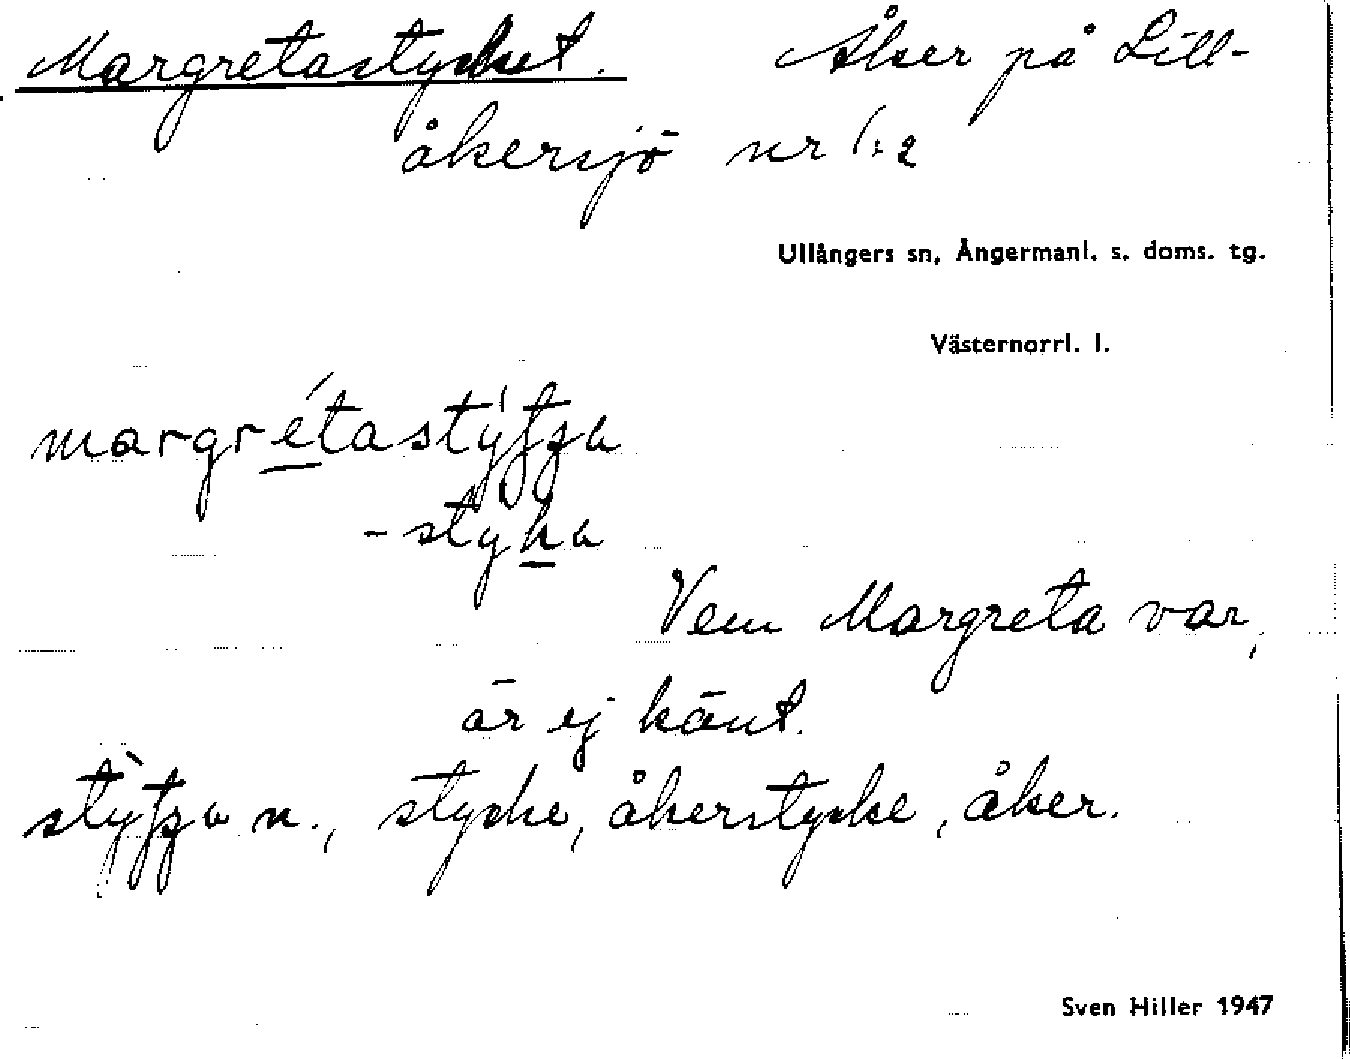 Margretastycket. Åker på Lill-
åkersjö nr 1:2
Ullångers sn, Ångermanl. s. doms. tg.
Västernorrl. l.
Vem Margreta var,
är ej känt.
n., stycke, åkerstycke, åker.
Sven Hiller 1947